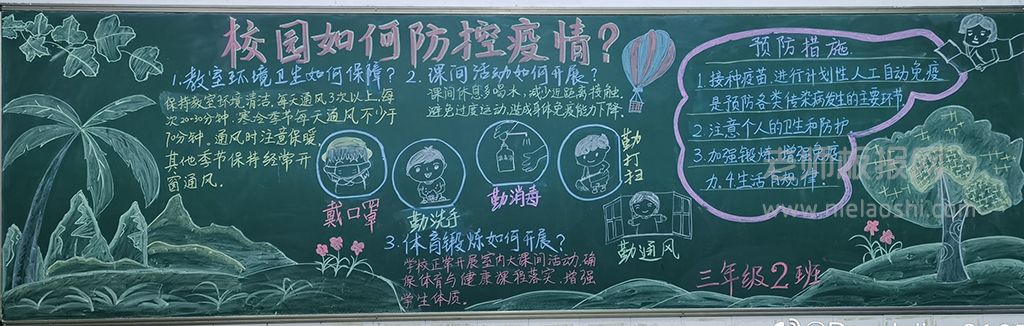 校园如何防控疫情?
1.教室环境卫生如何保障?
保持教室环境清洁,每天通风3次以上,每
次20-30分钟.寒冷季节每天通风不少于
70分钟.通风时注意保暖
其他季节保持经常开
窗通风.
2.课间活动如何开展?
课间休息多喝水,减少近距离接触,
避免过度运动,造成身体免疫能力下降.
戴口罩
勤洗手
勤消毒
勤打扫
勤通风
3.体育锻炼如何开展?
学校正常开展室内大课间活动,确
保体育与健康课程落实,增强
学生体质.
预防措施
1.接种疫苗,进行计划性人工自动免疫
是预防各类传染病发生的主要环节
2.注意个人的卫生和防护.
3.加强锻炼,增强免疫
力.4生活有规律.
三年级2班
老师板报网
www.mielaoshi.com